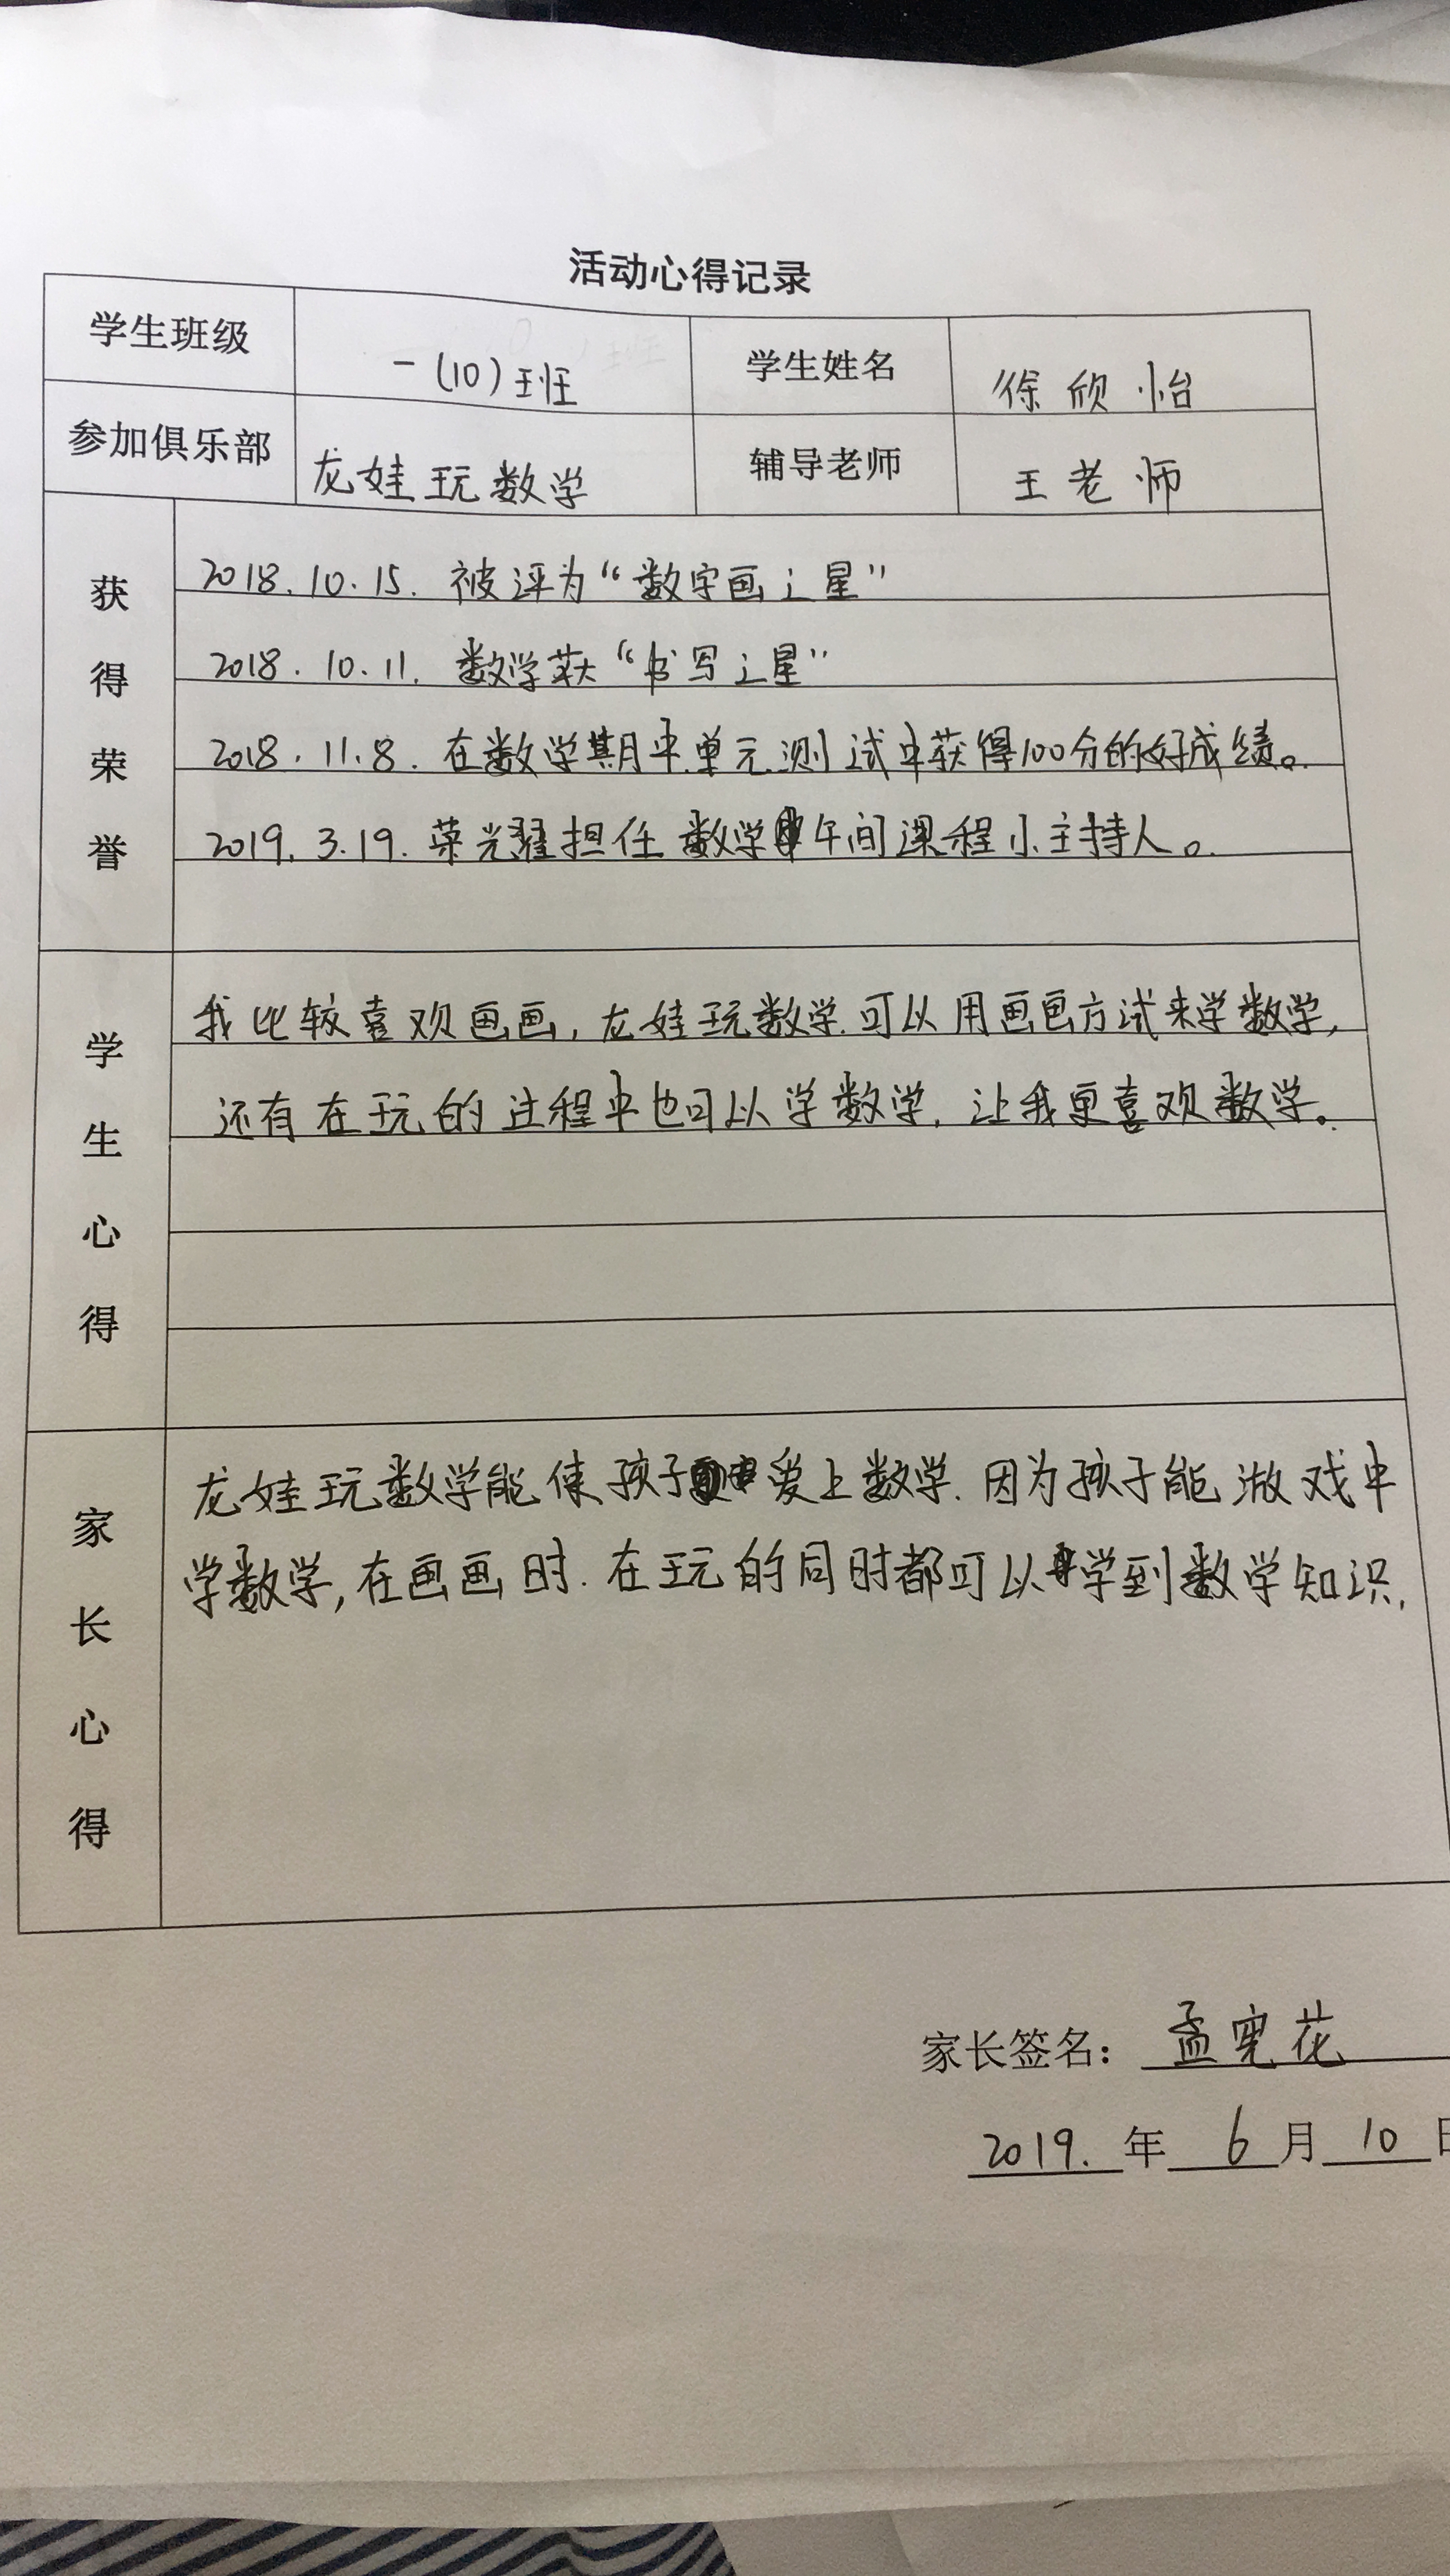 活动心得记录
学生班级 一(10)班 学生姓名 徐欣怡
参加俱乐部 龙娃玩数学 辅导老师 王老师
获得荣誉
2018.10.15. 被评为“数字画之星”
2018.10.11. 数学获“书写之星”
2018.11.8. 在数学期中单元测试中获得100分的好成绩。
2019.3.19. 荣光耀担任数学午间课程小主持人。
学生心得
我比较喜欢画画,龙娃玩数学.可以用画画方试来学数学,
还有在玩的过程中也可以学数学,让我更喜欢数学。
家长心得
龙娃玩数学能使孩子爱上数学.因为孩子能游戏中
学数学,在画画时.在玩的同时都可以学到数学知识,
家长签名: 孟 花
2019.年 6 月 10 日